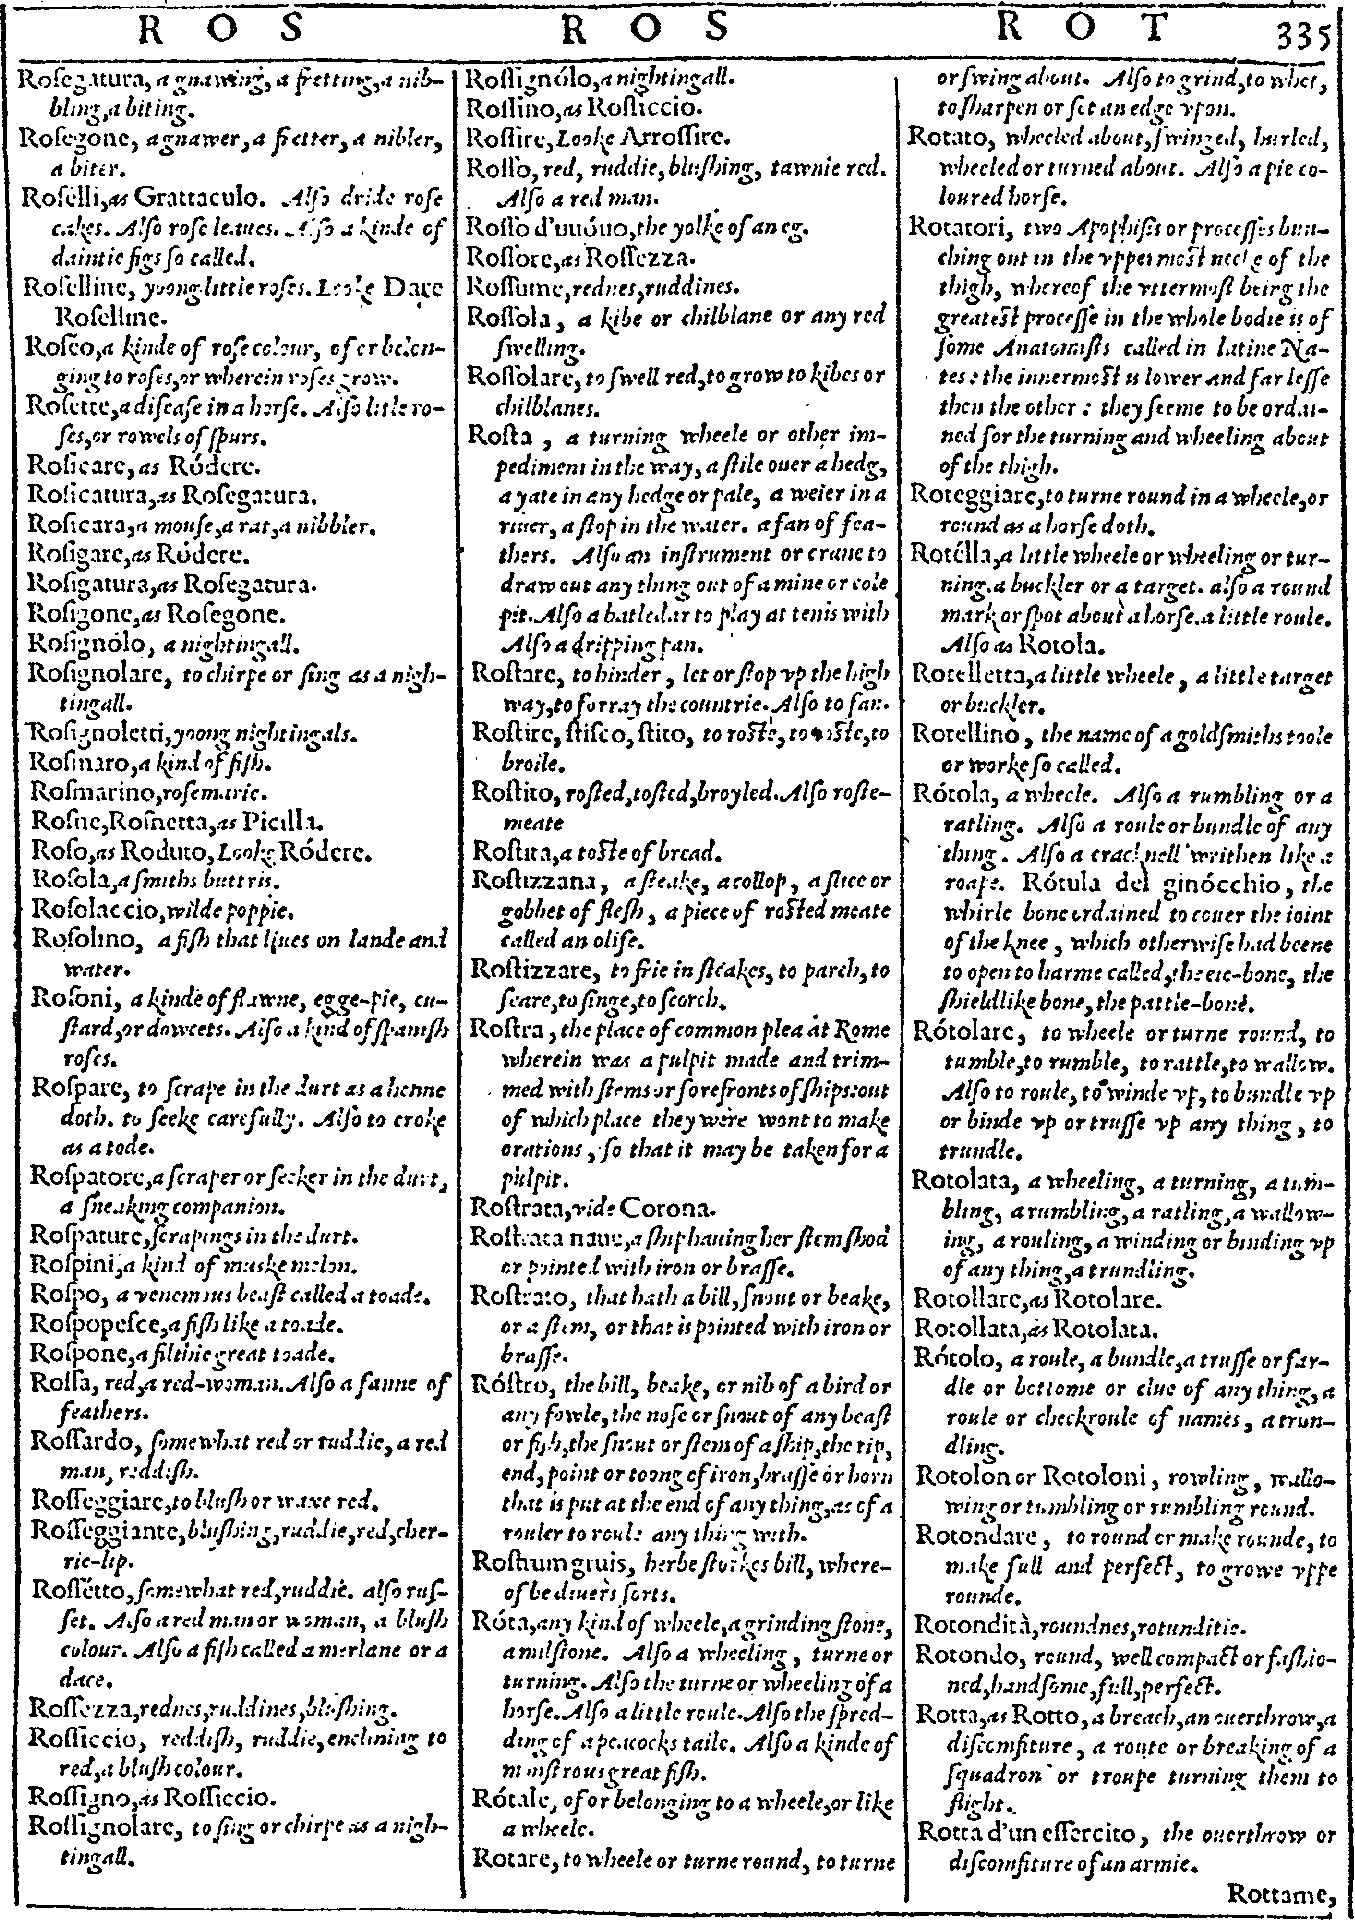 R O S
R O S
R O T
335
Rosegatura, a gnawing, a fretting, a nib-
bling, a biting.
Rosegone, a gnawer, a fretter, a nibler,
a biter.
Roselli, as Grattaculo. Also dride rose
cakes. Also rose leaues. Also a kinde of
daintie figs so called.
Roselline, yoong little roses. Looke Dare
Roselline.
Roseo, a kinde of rose colour, of or belon-
ging to roses, or wherein roses grow.
Rosette, a disease in a horse. Also litle ro-
ses, or rowels of spurs.
Rosicare, as Ródere.
Rosicatura, as Rosegatura.
Rosicara, a mouse, a rat, a nibbler.
Rosigare, as Ródere.
Rosigatura, as Rosegatura.
Rosigone, as Rosegone.
Rosignólo, a nightingall.
Rosignolare, to chirpe or sing as a nigh-
tingall.
Rosignoletti, yoong nightingals.
Rosmaro, a kind of fish.
Rosmarino, rosemarie.
Rosne, Rosnetta, as Picilla.
Roso, as Roduto, Looke Ródere.
Rosola, a smiths buttris.
Rosolaccio, wilde poppie.
Rosolino, a fish that liues on lande and
water.
Rosoni, a kinde of flawne, egge-pie, cu-
stard, or dowcets. Also a kind of spanish
roses.
Rospare, to scrape in the durt as a henne
doth. to seeke carefully. Also to croke
as a tode.
Rospatore, a scraper or seeker in the durt,
a sneaking companion.
Rospature, scrapings in the durt.
Rospini, a kind of muske melon.
Rospo, a venemous beast called a toade.
Rospopesce, a fish like a toade.
Rospone, a filthie great toade.
Rossa, red, a red-woman. Also a fanne of
feathers.
Rossardo, somewhat red or ruddie, a red
man, reddish.
Rosseggiare, to blush or waxe red.
Rosseggiante, blushing, ruddie, red, cher-
rie-lip.
Rossétto, somewhat red, ruddie. also rus-
set. Also a red man or woman, a blush
colour. Also a fish called a merlane or a
dace.
Rossezza, rednes, ruddines, blushing.
Rossiccio, reddish, ruddie, enclining to
red, a blush colour.
Rossigno, as Rossiccio.
Rossignolare, to sing or chirpe as a nigh-
tingall.
Rossignólo, a nightingall.
Rossino, as Rossiccio.
Rossire, Looke Arrossire.
Rosso, red, ruddie, blushing, tawnie red.
Also a red man.
Rosso d'uuóuo, the yolke of an eg.
Rossore, as Rossezza.
Rossume, rednes, ruddines.
Rossola, a kibe or chilblane or any red
swelling.
Rossolare, to swell red, to grow to kibes or
chilblanes.
Rosta, a turning wheele or other im-
pediment in the way, a stile ouer a hedg,
a yate in any hedge or pale, a weier in a
riuer, a stop in the water. a fan of fea-
thers. Also an instrument or crane to
draw out any thing out of a mine or cole
pit. Also a batledar to play at tenis with
Also a dripping pan.
Rostare, to hinder, let or stop vp the high
way, to forray the countrie. Also to fan.
Rostire, stisco, stito, to roste, to toste, to
broile.
Rostito, rosted, tosted, broyled. Also roste-
meate
Rostita, a toste of bread.
Rostizzana, a steake, a collop, a slice or
gobbet of flesh, a piece of rosted meate
called an olife.
Rostizzare, to frie in steakes, to parch, to
seare, to singe, to scorch.
Rostra, the place of common plea at Rome
wherein was a pulpit made and trim-
med with stems or forefronts of ships: out
of which place they were wont to make
orations, so that it may be taken for a
pulpit.
Rostrata, vide Corona.
Rostrata naue, a ship hauing her stem shod
or pointed with iron or brasse.
Rostrato, that hath a bill, snout or beake,
or a stem, or that is pointed with iron or
brasse.
Róstro, the bill, beake, or nib of a bird or
any fowle, the nose or snout of any beast
or fish, the snout or stem of a ship, the tip,
end, point or toong of iron, brasse or horn
that is put at the end of any thing, as of a
rouler to roule any thing with.
Rostrum gruis, herbe storkes bill, where-
of be diuers sorts.
Róta, any kind of wheele, a grinding stone,
a milstone. Also a wheeling, turne or
turning. Also the turne or wheeling of a
horse. Also a little roule. Also the spred-
ding of a peacocks taile. Also a kinde of
monstrous great fish.
Rótale, of or belonging to a wheele, or like
a wheele.
Rotare, to wheele or turne round, to turne
or swing about. Also to grind, to whet,
to sharpen or set an edge vpon.
Rotato, wheeled about, swinged, hurled,
wheeled or turned about. Also a pie co-
loured horse.
Rotatori, two Apophisis or processes bun-
ching out in the vppermost necke of the
thigh, whereof the vttermost being the
greatest processe in the whole bodie is of
some Anatomists called in latine Na-
tes: the innermost is lower and far lesse
then the other: they seeme to be ordai-
ned for the turning and wheeling about
of the thigh.
Roteggiare, to turne round in a wheele, or
round as a horse doth.
Rotélla, a little wheele or wheeling or tur-
ning. a buckler or a target. also a round
mark or spot about a horse. a little roule.
Also as Rotola.
Rotelletta, a little wheele, a little target
or buckler.
Rotellino, the name of a goldsmiths toole
or worke so called.
Rótola, a wheele. Also a rumbling or a
ratling. Also a roule or bundle of any
thing. Also a cracknell writhen like a
roape. Rótula del ginócchio, the
whirle bone ordained to couer the ioint
of the knee, which otherwise had beene
to open to harme called, the eie-bone, the
shieldlike bone, the pattle-bone.
Rótolare, to wheele or turne round, to
tumble, to rumble, to rattle, to wallow.
Also to roule, to winde vp, to bundle vp
or binde vp or trusse vp any thing, to
trundle.
Rotolata, a wheeling, a turning, a tum-
bling, a rumbling, a ratling, a wallow-
ing, a rouling, a winding or binding vp
of any thing, a trundling.
Rotollare, as Rotolare.
Rotollata, as Rotolata.
Rótolo, a roule, a bundle, a trusse or far-
dle or bottome or clue of any thing, a
roule or checkroule of names, a trun-
dling.
Rotolon or Rotoloni, rowling, wallo-
wing or tumbling or rumbling round.
Rotondare, to round or make rounde, to
make full and perfect, to growe vppe
rounde.
Rotondità, roundnes, rotunditie.
Rotondo, round, well compact or fashio-
ned, handsome, full, perfect.
Rotta, as Rotto, a breach, an ouerthrow, a
discomfiture, a route or breaking of a
squadron or troupe turning them to
flight.
Rotta d'un essercito, the ouerthrow or
discomfiture of an armie.
Rottame,